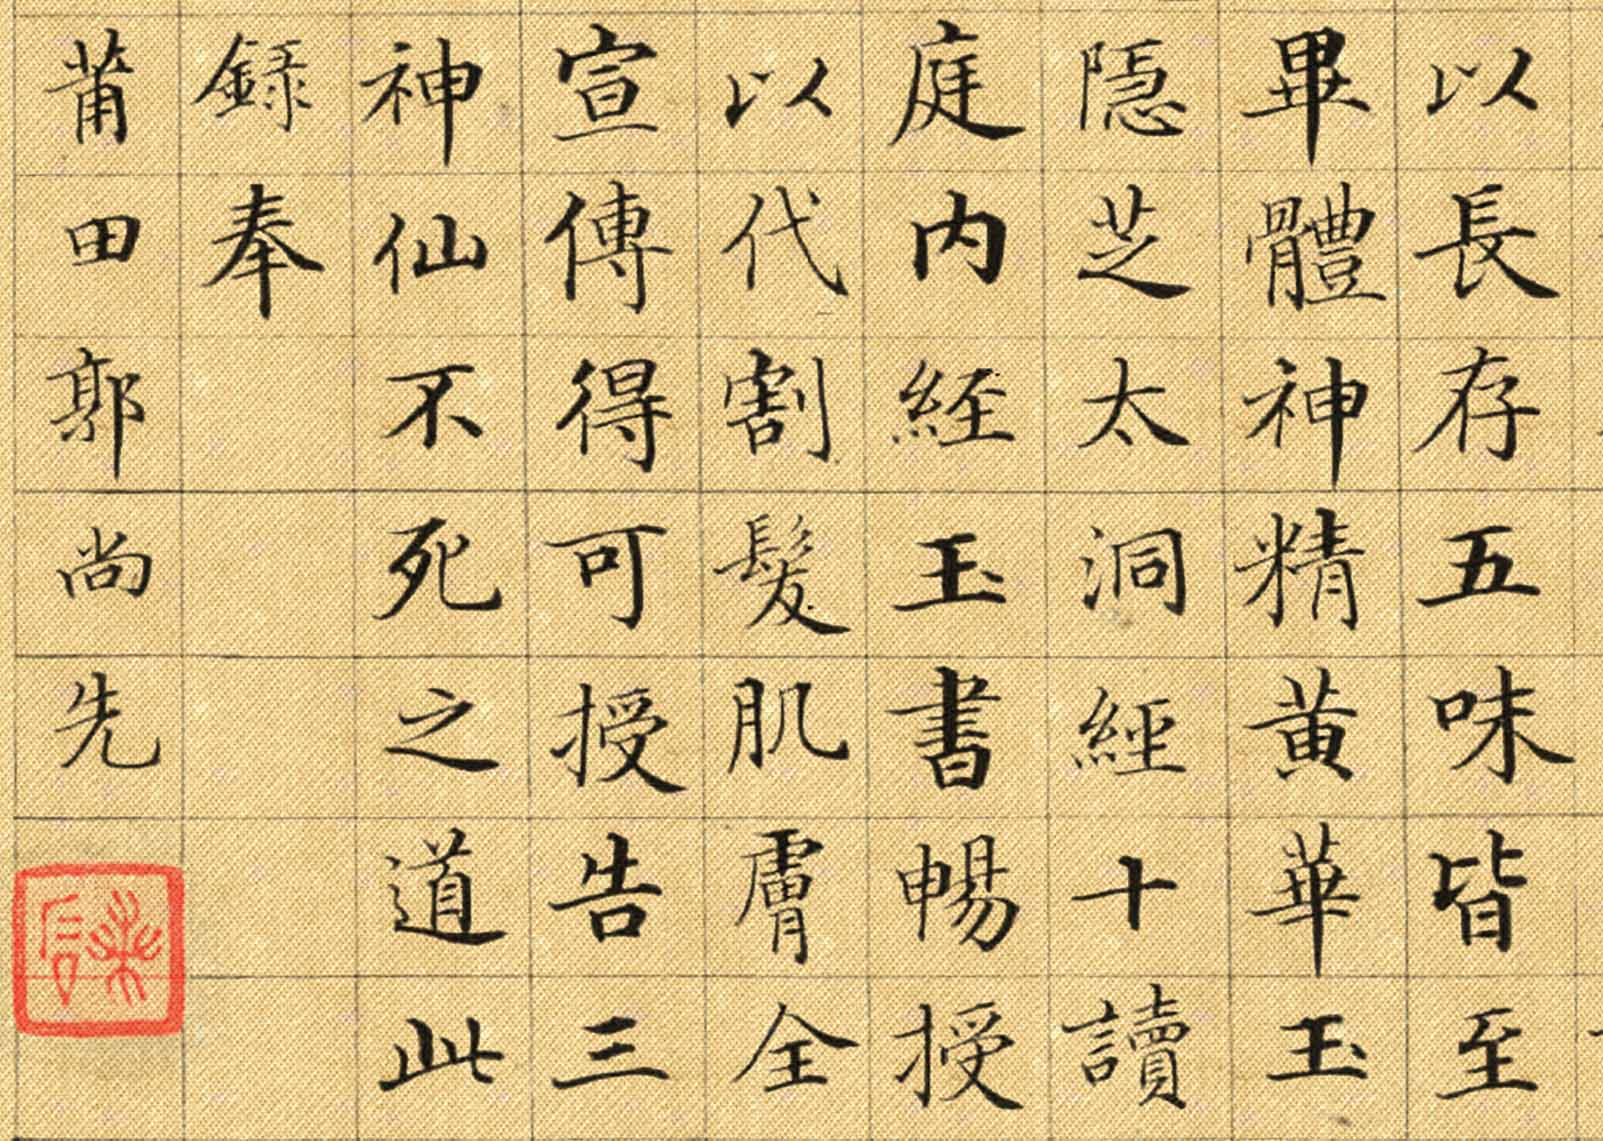 以長存五味皆至
畢體神精黃華玉
隱芝太洞經十讀
庭內經玉書暢授
以代割髮肌膚全
宣傳得可授告三
神仙不死之道此
錄奉
莆田郭尚先